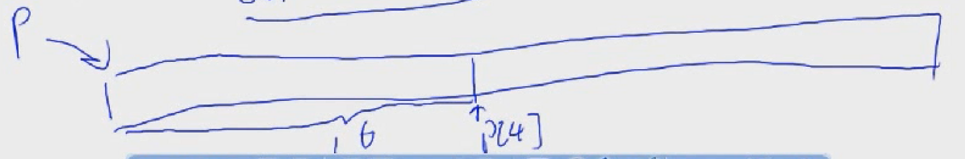 P
16
P[4]